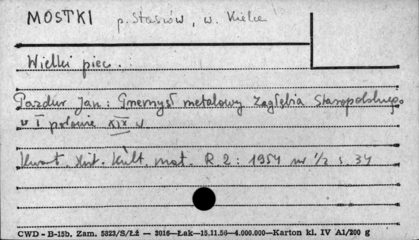 MOSTKI p. Stasiów, w. Kielce
Wielki piec.
Pazdur Jan: Przemysł metalowy Zagłębia Staropolskiego
w I połowie XIX w.
Kwart. Hist. Kult. mat. R 2: 1954 nr 1/2 s. 34
CWD - B-15b. Zam. 5823/S/Łź — 3016—Łak—15.11.56—4.000.000—Karton kl. IV A1/200 g